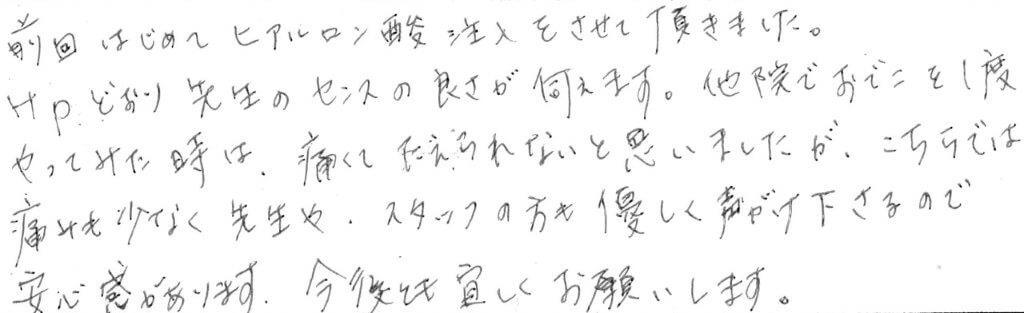 前回はじめてヒアルロン酸注入をさせて頂きました。
HPどおり先生のセンスの良さが伺えます。他院でおでこを1度
やってみた時は、痛くてたえられないと思いましたが、こちらでは
痛みも少なく先生や、スタッフの方も優しく声がけ下さるので
安心感があります。今後とも宜しくお願いします。